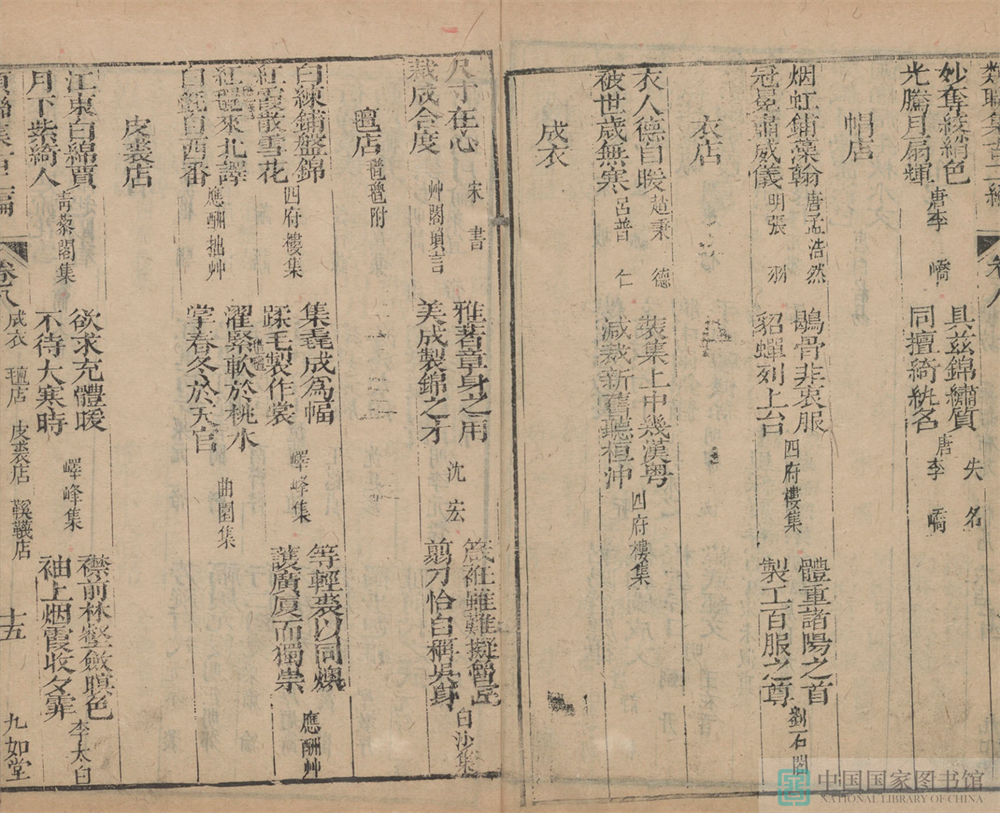 妙奪綾綃色
光騰月扇輝
唐李嶠
具兹錦繡質
失名
同擅綺紈名
唐李嶠
帽店
烟虹鋪藻翰
唐孟浩然
冠冕肅威儀
明張羽
鶡骨非衷服
貂蟬列上台
四府樓集
體重諸陽之首
製工百服之尊
劉石閣
衣店
衣人德自暖
趙秉德
被世歲無寒
呂普仁
裝集上中幾漢粤
減裁新舊聽桓沖
四府樓集
成衣
尺寸在心
裁成合度
宋書
雅著章身之用
美成製錦之才
沈宏
箴
艸閣瑣言
翦刀恰自稱吳身
白沙集
氊店
白練鋪盤錦
紅霞散雪花
四府樓集
集毳成為幅
蹂毛製作裳
嶧峰集
等輕裘以同煥
護廣厦而獨崇
應酬艸
紅氍來北譯
白氎自西番
應酬拙艸
濯緊軟於桃水
掌春冬於天官
曲園集
皮裘店
江東白綿賈
月下紫綺人
青藜閣集
欲求充體暖
不待大寒時
嶧峰集
襟前林壑斂暝色
袖上烟霞收夕霏
李太白
卷八
成衣
氊店
皮裘店
鞵韈店
十五
九如堂
中国国家图书馆
NATIONAL LIBRARY OF CHINA